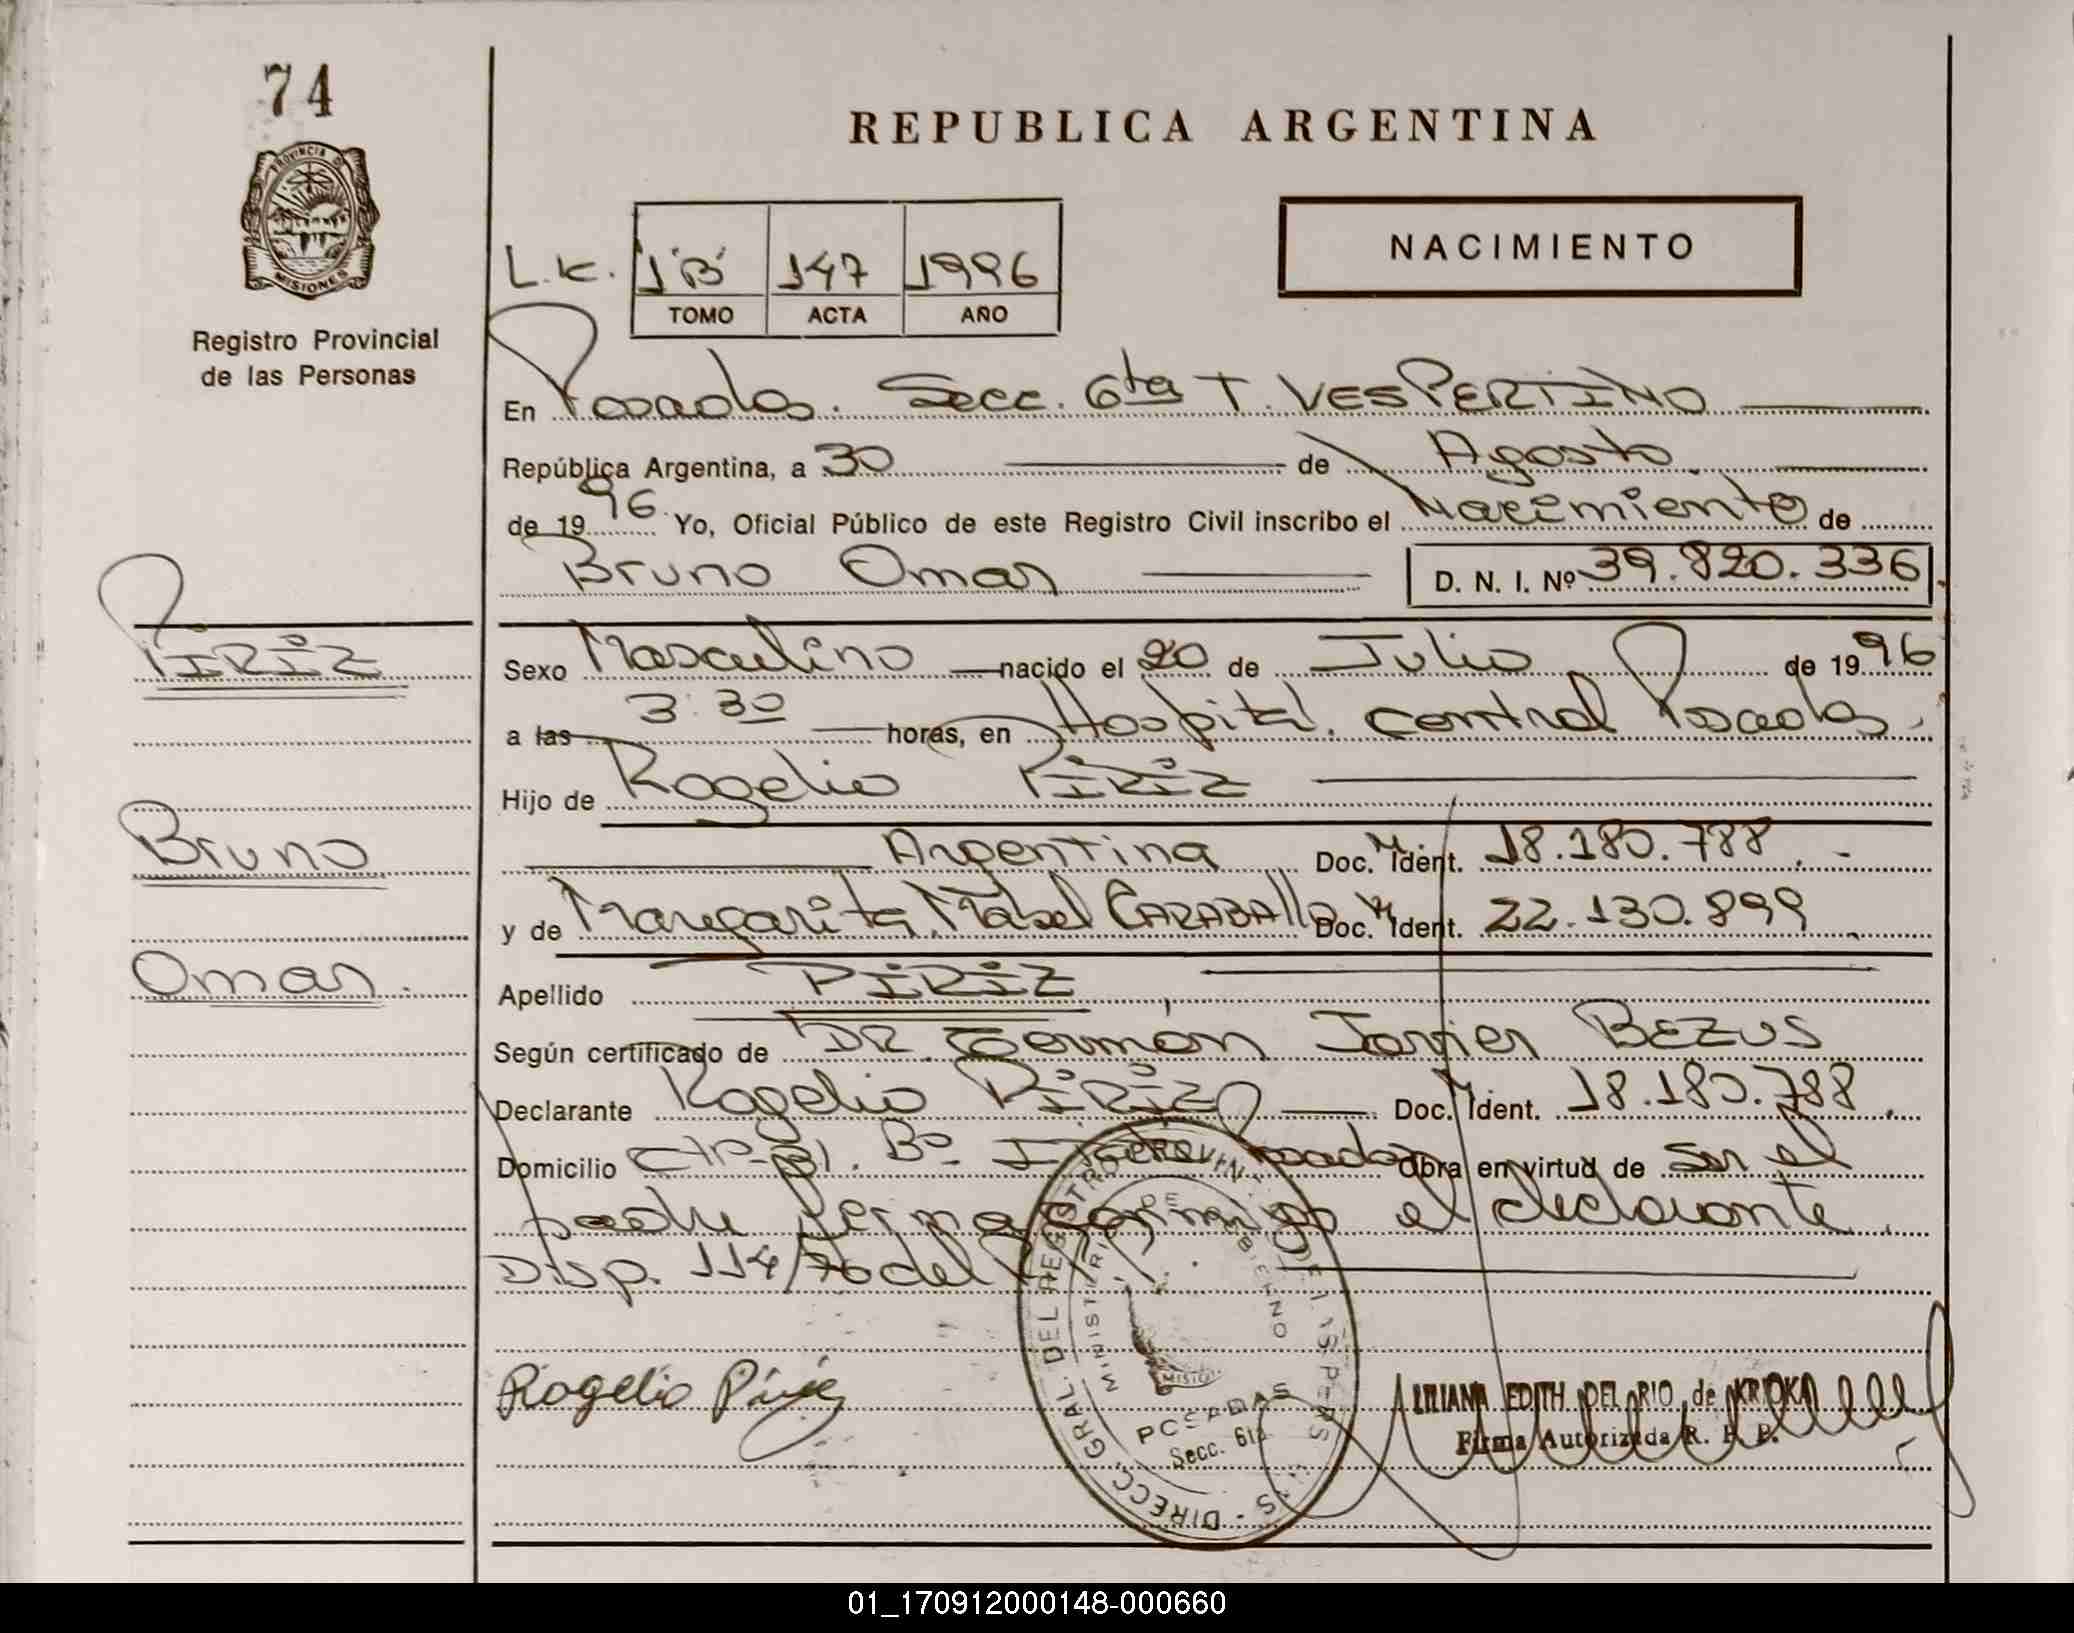 74
PROVINCIA D
MISIONES
Registro Provincial
de las Personas
REPUBLICA ARGENTINA
NACIMIENTO
L.K. 1"B" 147 1996
TOMO ACTA AÑO
En Posadas. Secc. 6ta T. VESPERTINO
República Argentina, a 30 de Agosto
de 1996. Yo, Oficial Público de este Registro Civil inscribo el Nacimiento de
Bruno Omar D. N. I. Nº 39.820.336
PIRIZ
Sexo Masculino nacido el 20 de Julio de 1996
a las 3:30 horas, en Hospital. central Posadas.
Hijo de Rogelio PIRIZ
Bruno
Argentina Doc. Ident. 18.180.788.-
y de Margarita Mabel CARABALLO Doc. Ident. 22.130.899
Omar.
Apellido PIRIZ
Según certificado de DR. Germán Javier BEZUS
Declarante Rogelio PIRIZ Doc. Ident. 18.180.788.
Domicilio Bº Posadas Obra en virtud de ser el
padre firma conmigo el declarante.
Disp. 114/76 del
Rogelio Piriz
DIRECC. GRAL. DEL REGISTRO DE LAS PERS
MINISTERIO DE GOBIERNO
POSADAS
Secc. 6ta
LILIANA EDITH DEL RIO de KRIOKA
Firma Autorizada R. P. P.
01_170912000148-000660